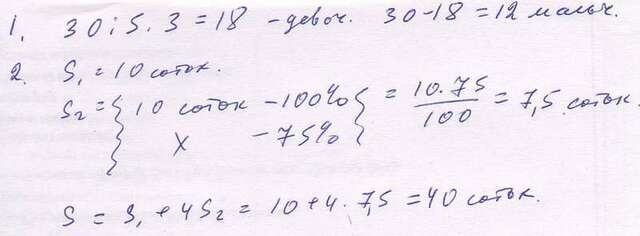 1. 30:5·3=18 -девоч. 30-18=12 мальч.
2. S₁=10 соток.
S₂={10 соток -100%}=10·75/100=7,5 соток.
x -75%
S=S₁+4S₂=10+4·7,5=40 соток.